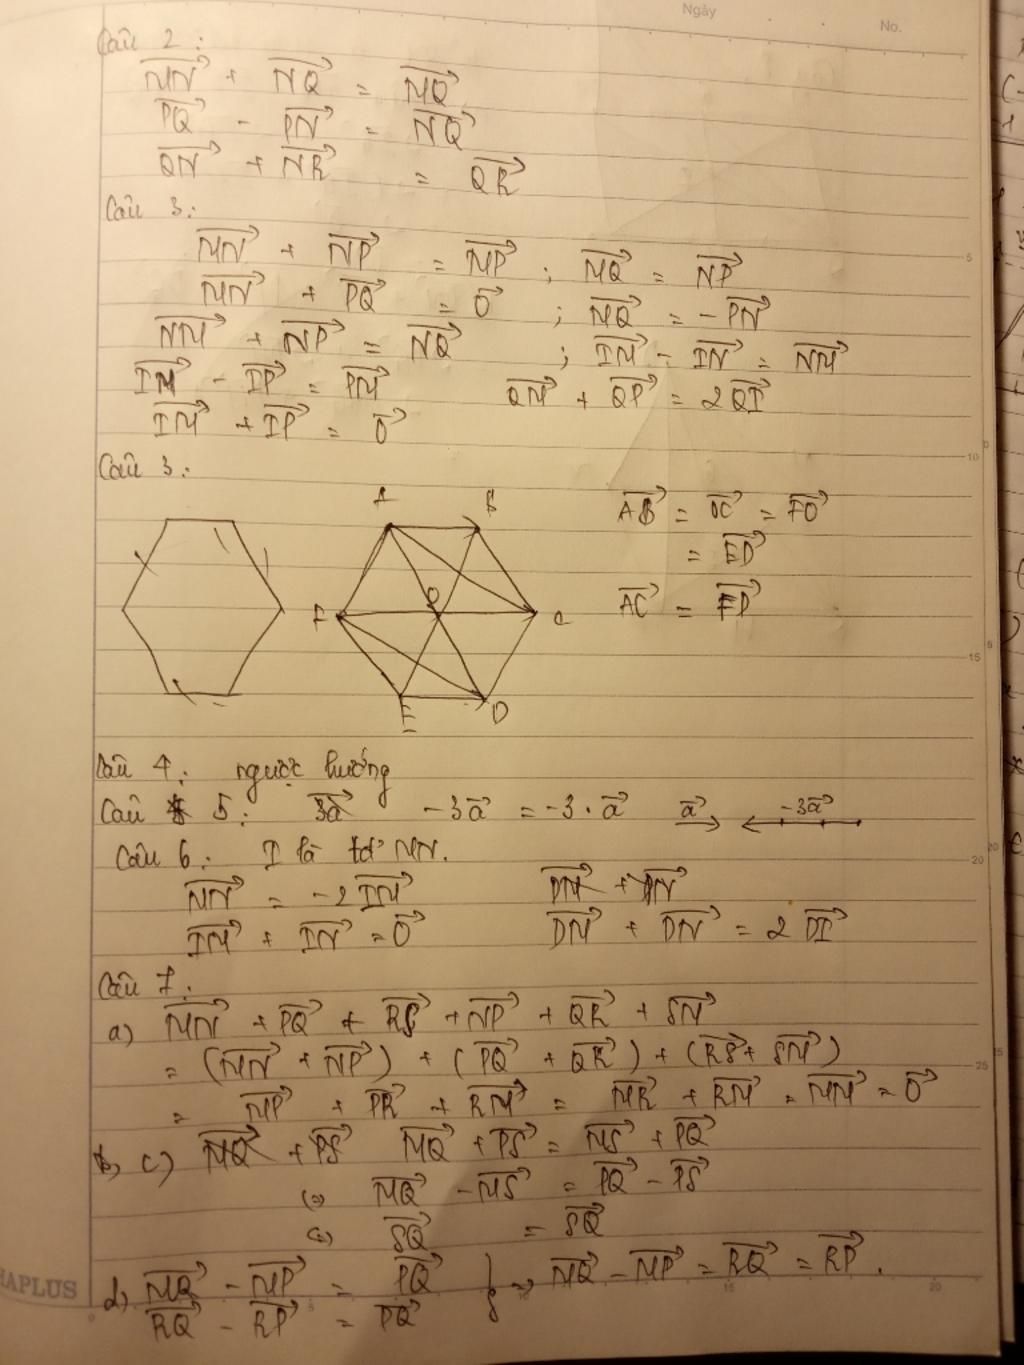 Ngày
No.
Câu 2:
$\overrightarrow{MN} + \overrightarrow{NQ} = \overrightarrow{MQ}$
$\overrightarrow{PQ} - \overrightarrow{PN} = \overrightarrow{NQ}$
$\overrightarrow{QN} + \overrightarrow{NR} = \overrightarrow{QR}$
Câu 3:
$\overrightarrow{MN} + \overrightarrow{NP} = \overrightarrow{MP}$ ; $\overrightarrow{MQ} = \overrightarrow{NP}$
$\overrightarrow{MN} + \overrightarrow{PQ} = \vec{0}$ ; $\overrightarrow{MQ} = -\overrightarrow{PN}$
$\overrightarrow{NM} + \overrightarrow{NP} = \overrightarrow{NQ}$ ; $\overrightarrow{IM} - \overrightarrow{IN} = \overrightarrow{NM}$
$\overrightarrow{IM} - \overrightarrow{IP} = \overrightarrow{PM}$ $\overrightarrow{QM} + \overrightarrow{QP} = 2\overrightarrow{QI}$
$\overrightarrow{IM} + \overrightarrow{IP} = \vec{0}$
Câu 3:
A B
F O C
E D
$\overrightarrow{AB} = \overrightarrow{OC} = \overrightarrow{FO}$
$= \overrightarrow{ED}$
$\overrightarrow{AC} = \overrightarrow{FD}$
Câu 4: ngược hướng
Câu 5: $\overrightarrow{3a}$ $-3\vec{a} = -3 \cdot \vec{a}$ $\vec{a}$ $-3\vec{a}$
Câu 6: I là tđ MN.
$\overrightarrow{MN} = -2\overrightarrow{IM}$ $\overrightarrow{DM} + \overrightarrow{DN}$
$\overrightarrow{IM} + \overrightarrow{IN} = \vec{0}$ $\overrightarrow{DM} + \overrightarrow{DN} = 2\overrightarrow{DI}$
Câu 7:
a) $\overrightarrow{MN} + \overrightarrow{PQ} + \overrightarrow{RS} + \overrightarrow{NP} + \overrightarrow{QR} + \overrightarrow{SM}$
$= (\overrightarrow{MN} + \overrightarrow{NP}) + (\overrightarrow{PQ} + \overrightarrow{QR}) + (\overrightarrow{RS} + \overrightarrow{SM})$
$= \overrightarrow{MP} + \overrightarrow{PR} + \overrightarrow{RM} = \overrightarrow{MR} + \overrightarrow{RM} = \overrightarrow{MM} = \vec{0}$
c) $\overrightarrow{MQ} + \overrightarrow{PS}$ $\overrightarrow{MQ} + \overrightarrow{PS} = \overrightarrow{MS} + \overrightarrow{PQ}$
(=) $\overrightarrow{MQ} - \overrightarrow{MS} = \overrightarrow{PQ} - \overrightarrow{PS}$
(=) $\overrightarrow{SQ} = \overrightarrow{SQ}$
d) $\overrightarrow{MQ} - \overrightarrow{MP} = \overrightarrow{PQ}$ } => $\overrightarrow{MQ} - \overrightarrow{MP} = \overrightarrow{RQ} = \overrightarrow{RP}$.
$\overrightarrow{RQ} - \overrightarrow{RP} = \overrightarrow{PQ}$
HAPLUS
5
10
15
20
25